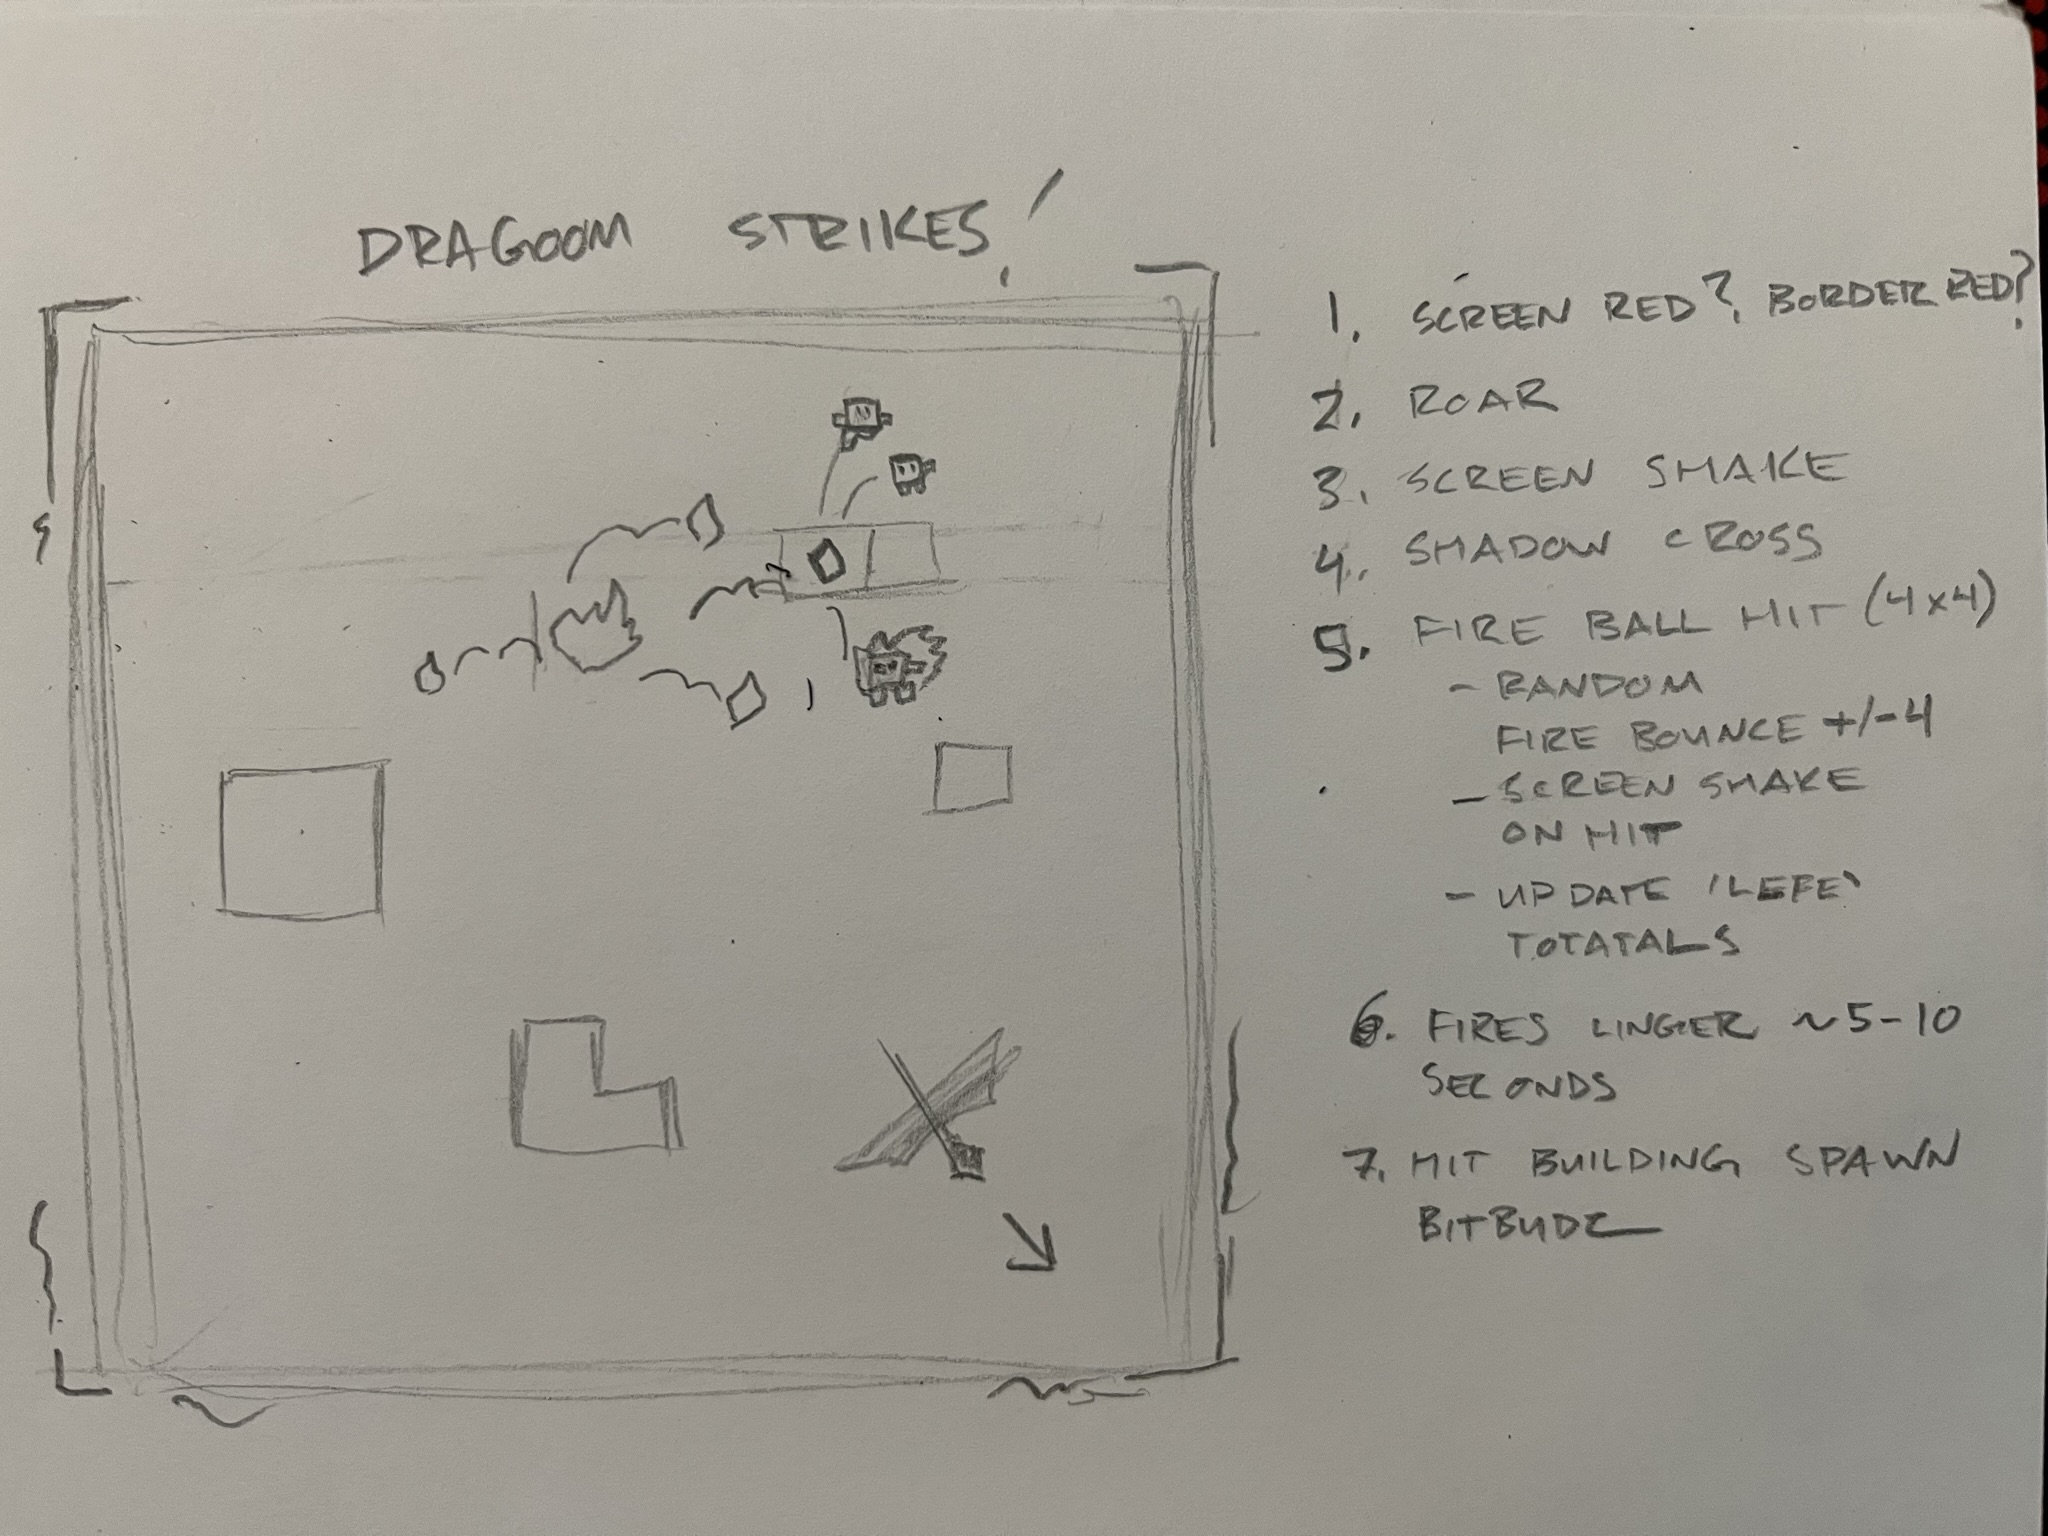 DRAGOOM STRIKES!
1. SCREEN RED? BORDER RED?
2. ROAR
3. SCREEN SHAKE
4. SHADOW CROSS
5. FIRE BALL HIT (4x4)
- RANDOM
FIRE BOUNCE +/-4
- SCREEN SHAKE
ON HIT
- UPDATE 'LEFE'
TOTATALS
6. FIRES LINGER ~5-10
SECONDS
7. HIT BUILDING SPAWN